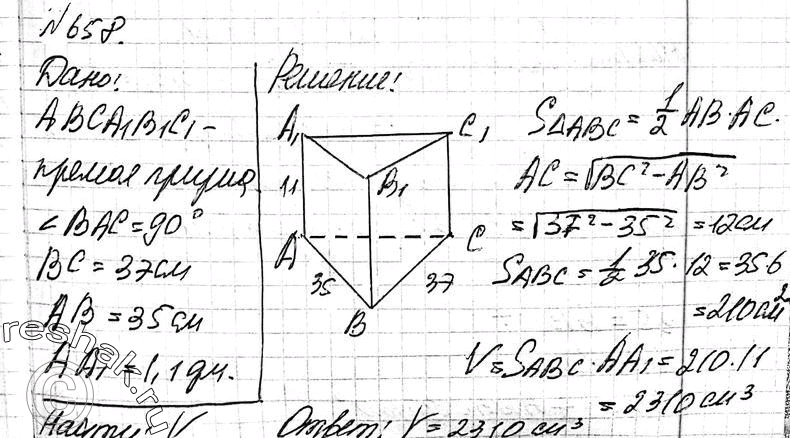 №658.
Дано:
ABCA₁B₁C₁ –
прямая призма
∠BAC = 90°
BC = 37см
AB = 35см
AA₁ = 1,1 дм.
Найти: V
Решение:
A₁ C₁
B₁
11
A C
35 37
B
S△ABC = 1/2 AB · AC.
AC = √BC² – AB²
= √37² – 35² = 12см
SABC = 1/2 35 · 12 = 35 6
= 210см²
V = SABC · AA₁ = 210 · 11
= 2310 см³
Ответ: V = 2310 см³
reshak.ru